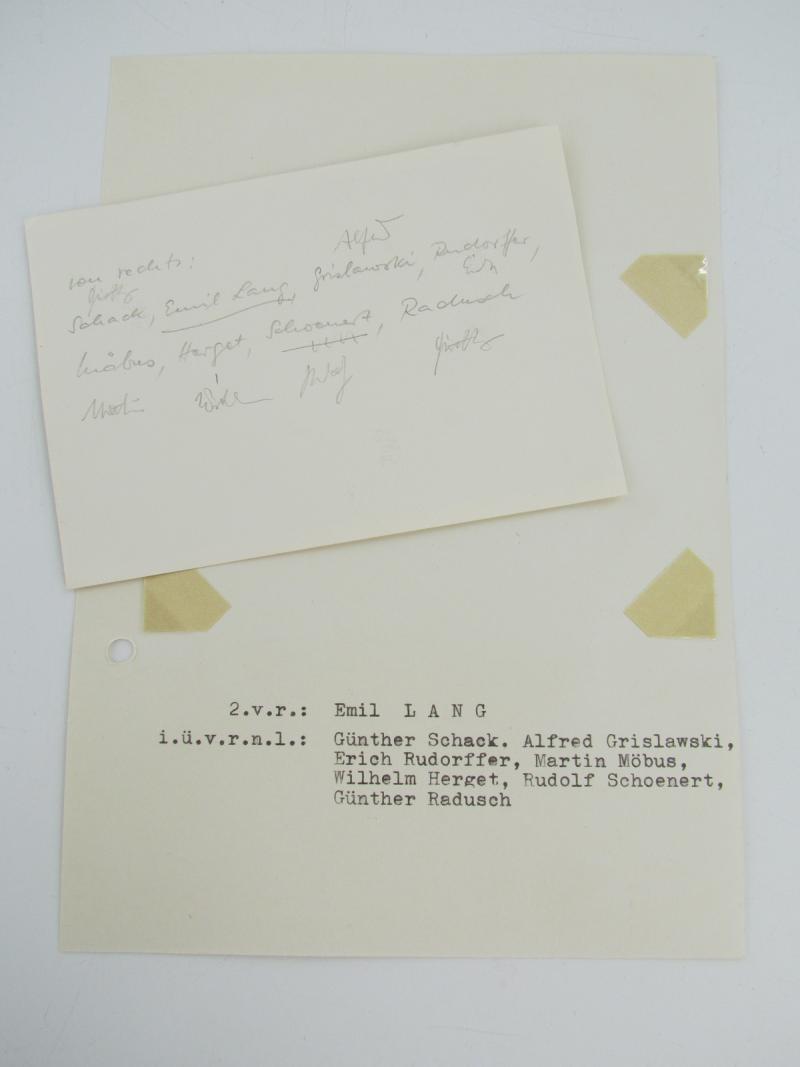 von rechts:
Alfred
Günther
Schack, Emil Lang, Grislawski, Rudorffer,
Erich
Möbus, Herget, Schoenert, Radusch
Martin Rudolf Günther
2.v.r.: Emil L A N G
i.ü.v.r.n.l.: Günther Schack. Alfred Grislawski,
Erich Rudorffer, Martin Möbus,
Wilhelm Herget, Rudolf Schoenert,
Günther Radusch